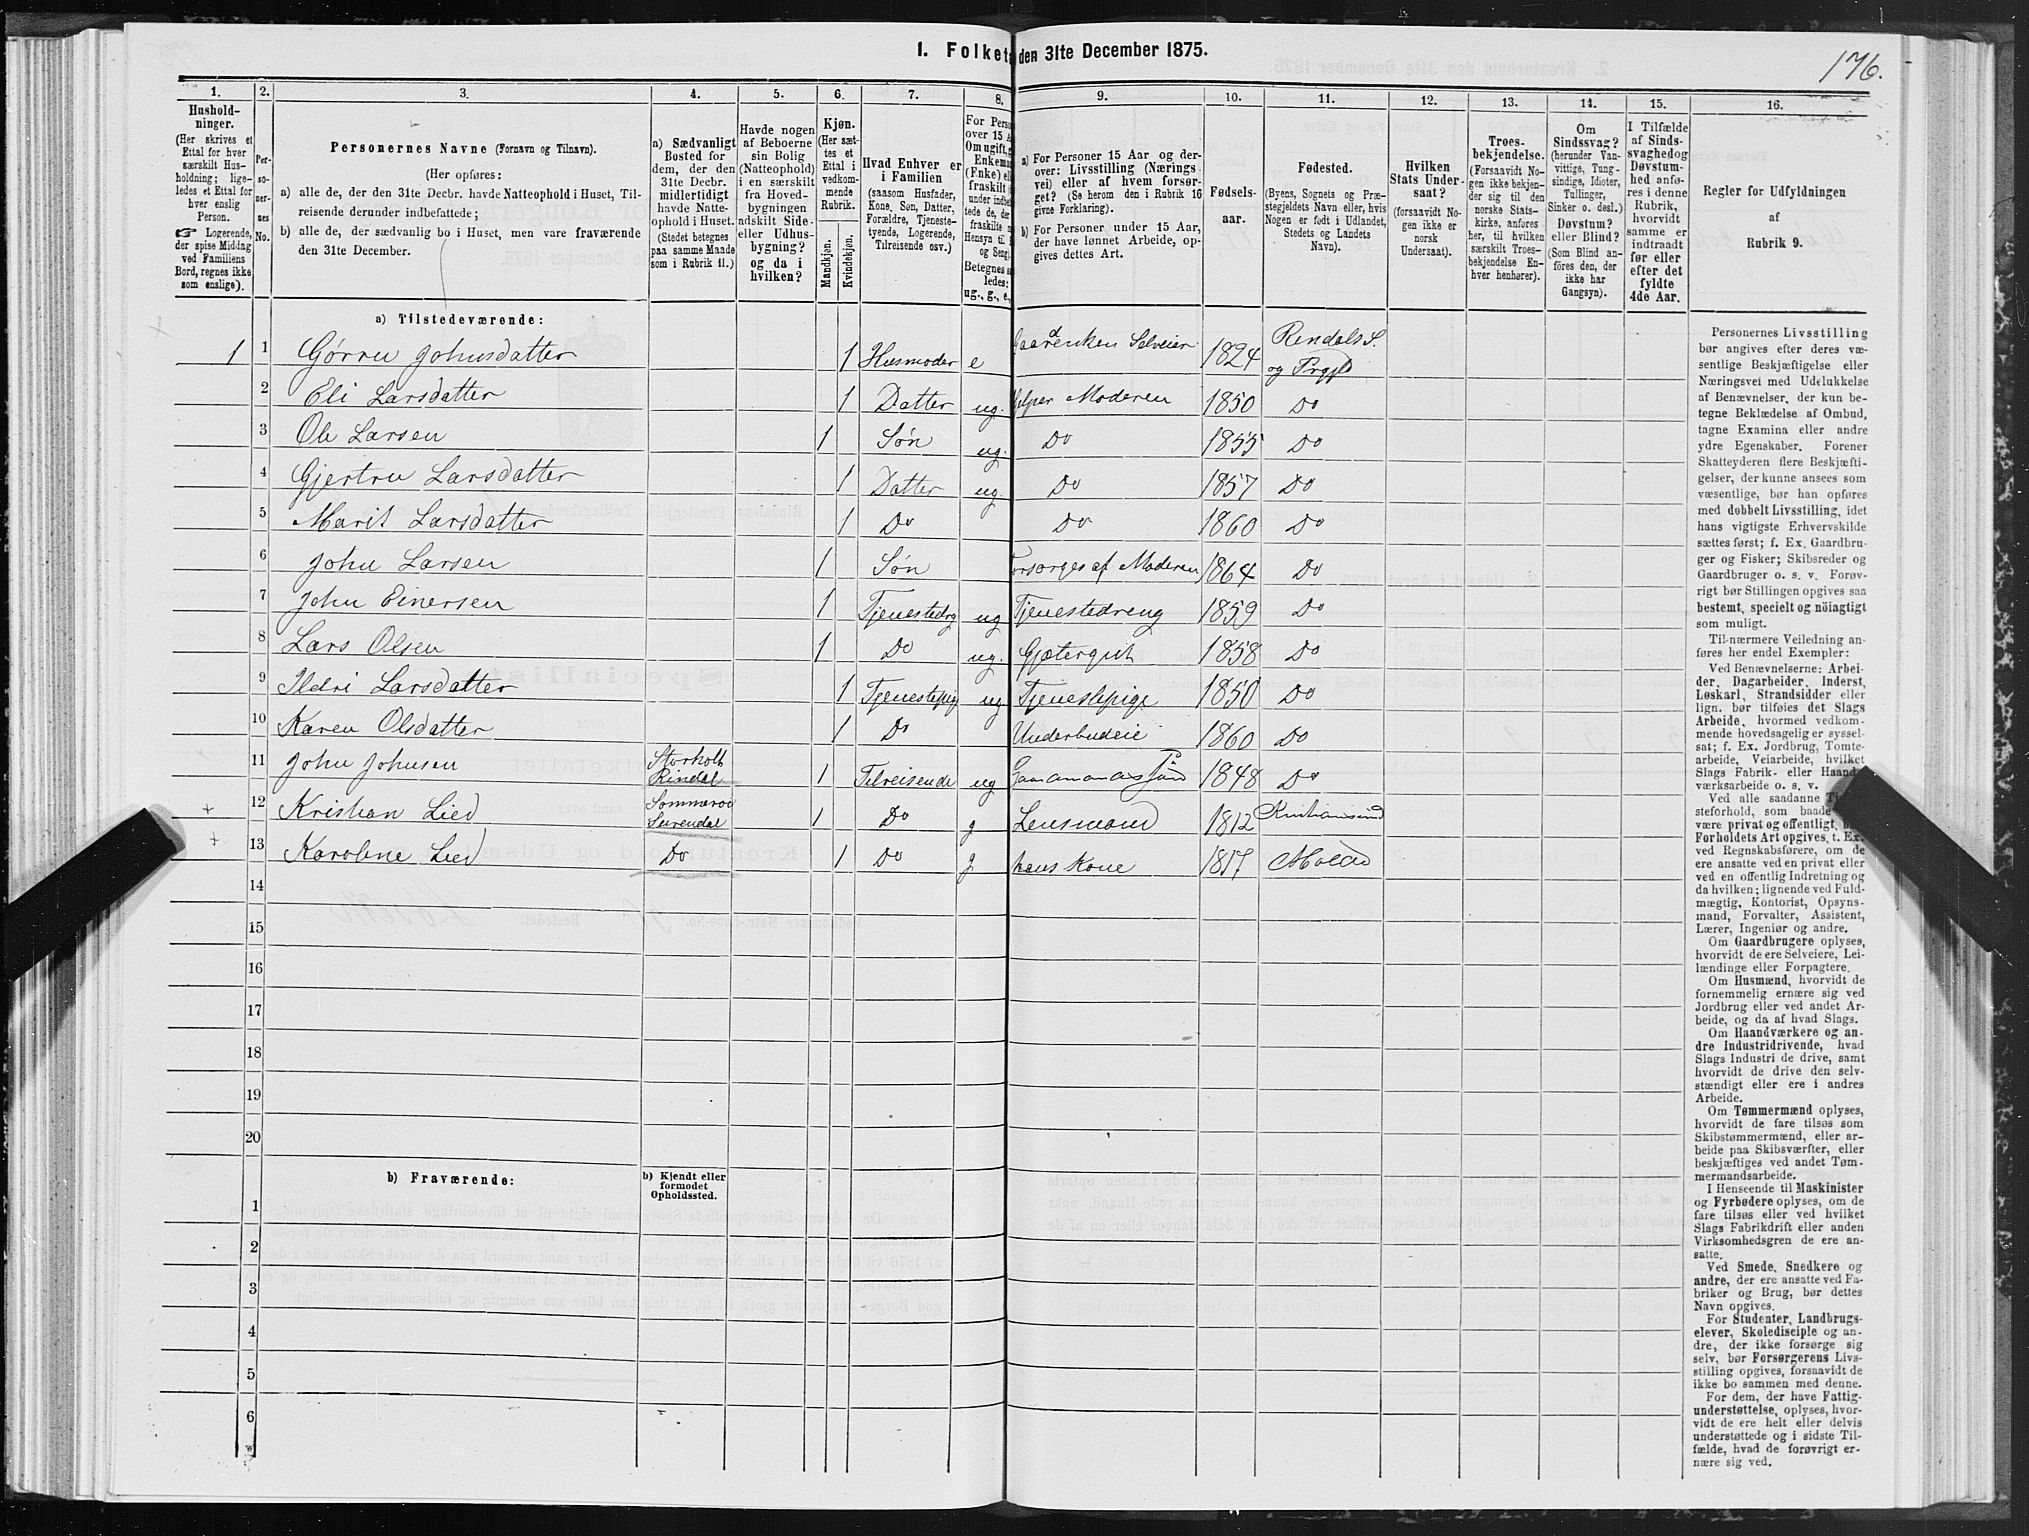 1. Folketæ den 31te December 1875.
176.
1. 2. 3. 4. 5. 6. 7. 8. 9. 10. 11. 12. 13. 14. 15. 16.
Hushold-
ninger.
(Her skrives et
Ettal for hver
særskilt Hus-
holdning; lige-
ledes et Ettal for
hver enslig
Person.
☞ Logerende,
der spise Middag
ved Familiens
Bord, regnes ikke
som enslige).
Per-
so-
ner-
nes
No.
Personernes Navne (Fornavn og Tilnavn).
(Her opføres:
a) alle de, der den 31te Decbr. havde Natteophold i Huset, Til-
reisende derunder indbefattede;
b) alle de, der sædvanlig bo i Huset, men vare fraværende
den 31te December.
a) Sædvanligt
Bosted for
dem, der den
31te Decbr.
midlertidigt
havde Natte-
ophold i Huset.
(Stedet betegnes
paa samme Maade
som i Rubrik 11.)
Havde nogen
af Beboerne
sin Bolig
(Natteophold)
i en særskilt
fra Hoved-
bygningen
adskilt Side-
eller Udhus-
bygning?
og da i
hvilken?
Kjøn.
(Her sæt-
tes et
Ettal i
vedkom-
mende
Rubrik.
Mandkjøn.
Kvindekjøn.
Hvad Enhver er
i Familien
(saasom Husfader,
Kone, Søn, Datter,
Forældre, Tjeneste-
tyende, Logerende,
Tilreisende osv.)
For Perso
over 15 A
Om ugift, g
Enkema
(Enke) el
fraskilt
under indbe
tede de, de
fraskilte
Hensyn til
og Seng
Betegnes s
ledes:
ug., g., e.,
a) For Personer 15 Aar og der-
over: Livsstilling (Nærings
vei) eller af hvem forsør-
get? (Se herom den i Rubrik 16
givne Forklaring).
b) For Personer under 15 Aar,
der have lønnet Arbeide, op-
gives dettes Art.
Fødsels-
aar.
Fødested.
(Byens, Sognets og Præ-
stegjeldets Navn eller, hvis
Nogen er født i Udlandet,
Stedets og Landets
Navn).
Hvilken
Stats Under-
saat?
(forsaavidt No-
gen ikke er
norsk
Undersaat).
Troes-
bekjendelse.
(Forsaavidt No-
gen ikke bekjen-
der sig til den
norske Stats-
kirke, anføres
her, til hvilken
særskilt Troes-
bekjendelse En-
hver henhører).
Om
Sindssvag?
(herunder Van-
vittige, Tung-
sindige, Idioter,
Tullinger,
Sinker o. desl.)
Døvstum?
eller Blind?
(Som Blind an-
føres den, der
ikke har
Gangsyn).
I Tilfælde
af Sinds-
svaghedog
Døvstum-
hed anfø-
res i denne
Rubrik,
hvorvidt
samme er
indtraadt
før eller
efter det
fyldte
4de Aar.
Regler for Udfyldningen
af
Rubrik 9.
a) Tilstedeværende:
1 1 Gørru Johnsdatter 1 Husmoder e Gaardenken Selveier 1824 Rendals S.
og Prgjld
2 Eli Larsdatter 1 Datter ug. hjelper Moderen 1850 Do
3 Ole Larsen 1 Søn ug. Do 1855 Do
4 Gjertru Larsdatter 1 Datter ug. Do 1857 Do
5 Marit Larsdatter 1 Do Do 1860 Do
6 John Larsen 1 Søn Forsorges af Moderen 1864 Do
7 John Einersen 1 Tjenestedrg ug Tjenestedreng 1859 Do
8 Lars Olsen 1 Do ug. Gjætergut 1858 Do
9 Ildri Larsdatter 1 Tjenestepig ug Tjenestepige 1850 Do
10 Karen Olsdatter 1 Do Underbudeie 1860 Do
11 John Johnsen Storholt
Rindal 1 Tilreisende ug Gaarmandssøn 1848 Do
12 Kristian Lied
Surendal 1 Do g Lensmand 1812 Kristiansund
13 Karoline Lied Do 1 Do g hans Kone 1817 Molde
14
15
16
17
18
19
20
b) Fraværende:
b) Kjendt eller
formodet
Opholdssted.
1
2
3
4
5
6
Personernes Livsstilling
bør angives efter deres væ-
sentlige Beskjæftigelse eller
Næringsvei med Udelukkelse
af Benævnelser, der kun be-
tegne Beklædelse af Ombud,
tagne Examina eller andre
ydre Egenskaber. Forener
Skatteyderen flere Beskjæfti-
gelser, der kunne ansees som
væsentlige, bør han opføres
med dobbelt Livsstilling, idet
hans vigtigste Erhvervskilde
sættes først; f. Ex. Gaardbru-
ger og Fisker; Skibsreder og
Gaardbruger o. s. v. Forøv-
rigt bør Stillingen opgives saa
bestemt, specielt og nöiagtigt
som muligt.
Til nærmere Veiledning an-
føres her endel Exempler:
Ved Benævnelserne: Arbei-
der, Dagarbeider, Inderst,
Løskarl, Strandsidder eller
lign. bør tilføies det Slags
Arbeide, hvormed vedkom-
mende hovedsagelig er syssel-
sat; f. Ex. Jordbrug, Tomte-
arbeide, Veiarbeide, hvilket
Slags Fabrik- eller Haand-
værksarbeide o. s. v.
Ved alle saadanne Tj
steforhold, som baade
være privat og offentligt,
Forholdets Art opgives, t. Ex.
ved Regnskabsførere, om de
ere ansatte ved en privat eller
ved en offentlig Indretning og
da hvilken; lignende ved Fuld-
mægtig, Kontorist, Opsyns-
mand, Forvalter, Assistent,
Lærer, Ingeniør og andre.
Om Gaardbrugere oplyses,
hvorvidt de ere Selveiere, Lei-
lændinge eller Forpagtere.
Om Husmænd, hvorvidt de
fornemmelig ernære sig ved
Jordbrug eller ved andet Ar-
beide, og da af hvad Slags.
Om Haandværkere og an-
dre Industridrivende, hvad
Slags Industri de drive, samt
hvorvidt de drive den selv-
stændigt eller ere i andres
Arbeide.
Om Tømmermænd oplyses,
hvorvidt de fare tilsøs som
Skibstømmermænd, eller ar-
beide paa Skibsværfter, eller
beskjæftiges ved andet Tøm-
mermandsarbeide.
I Henseende til Maskinister
og Fyrbødere oplyses, om de
fare tilsøs eller ved hvilket
Slags Fabrikdrift eller anden
Virksomhedsgren de ere an-
satte.
Ved Smede, Snedkere og
andre, der ere ansatte ved Fa-
briker og Brug, bør dettes
Navn opgives.
For Studenter, Landbrugs-
elever, Skoledisciple og an-
dre, der ikke forsørge sig
selv, bør Forsørgerens Livs-
stilling opgives, forsaavidt de
ikke bo sammen med denne.
For dem, der have Fattig-
understøttelse, oplyses, hvor-
vidt de ere helt eller delvis
understøttede og i sidste Til-
fælde, hvad de forøvrigt er-
nære sig ved.